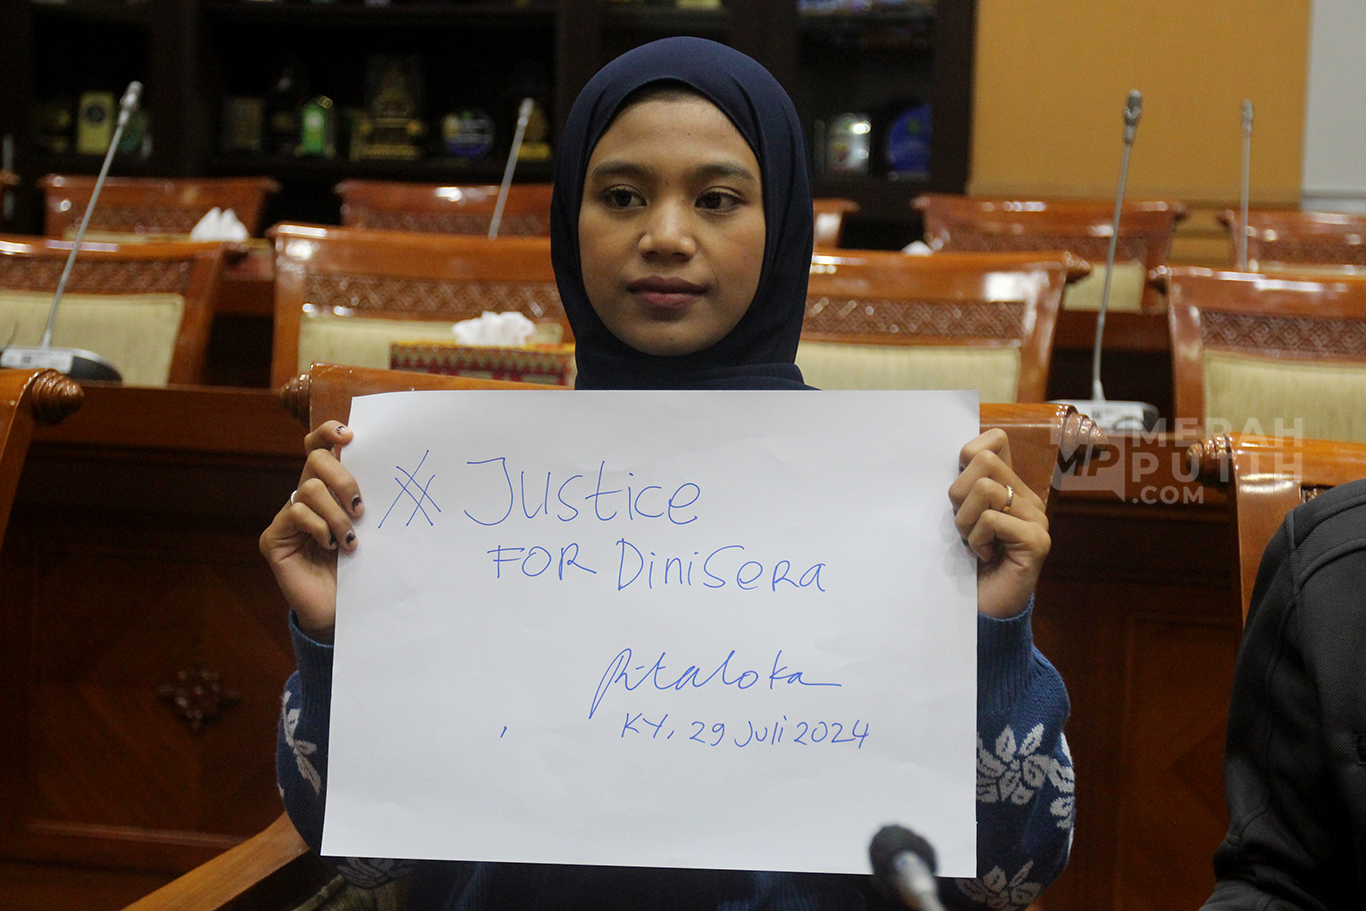 # Justice
FOR DiniSera
Pitaloka
KY, 29 Juli 2024
MERAH
PUTIH
.COM